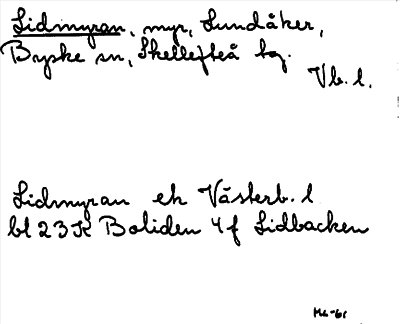 Lidmyran, myr, Lundåker,
Byske sn, Skellefteå tg.
Vb. l.
Lidmyran ek Västerb. l
bl 23K Boliden 4f Lidbacken